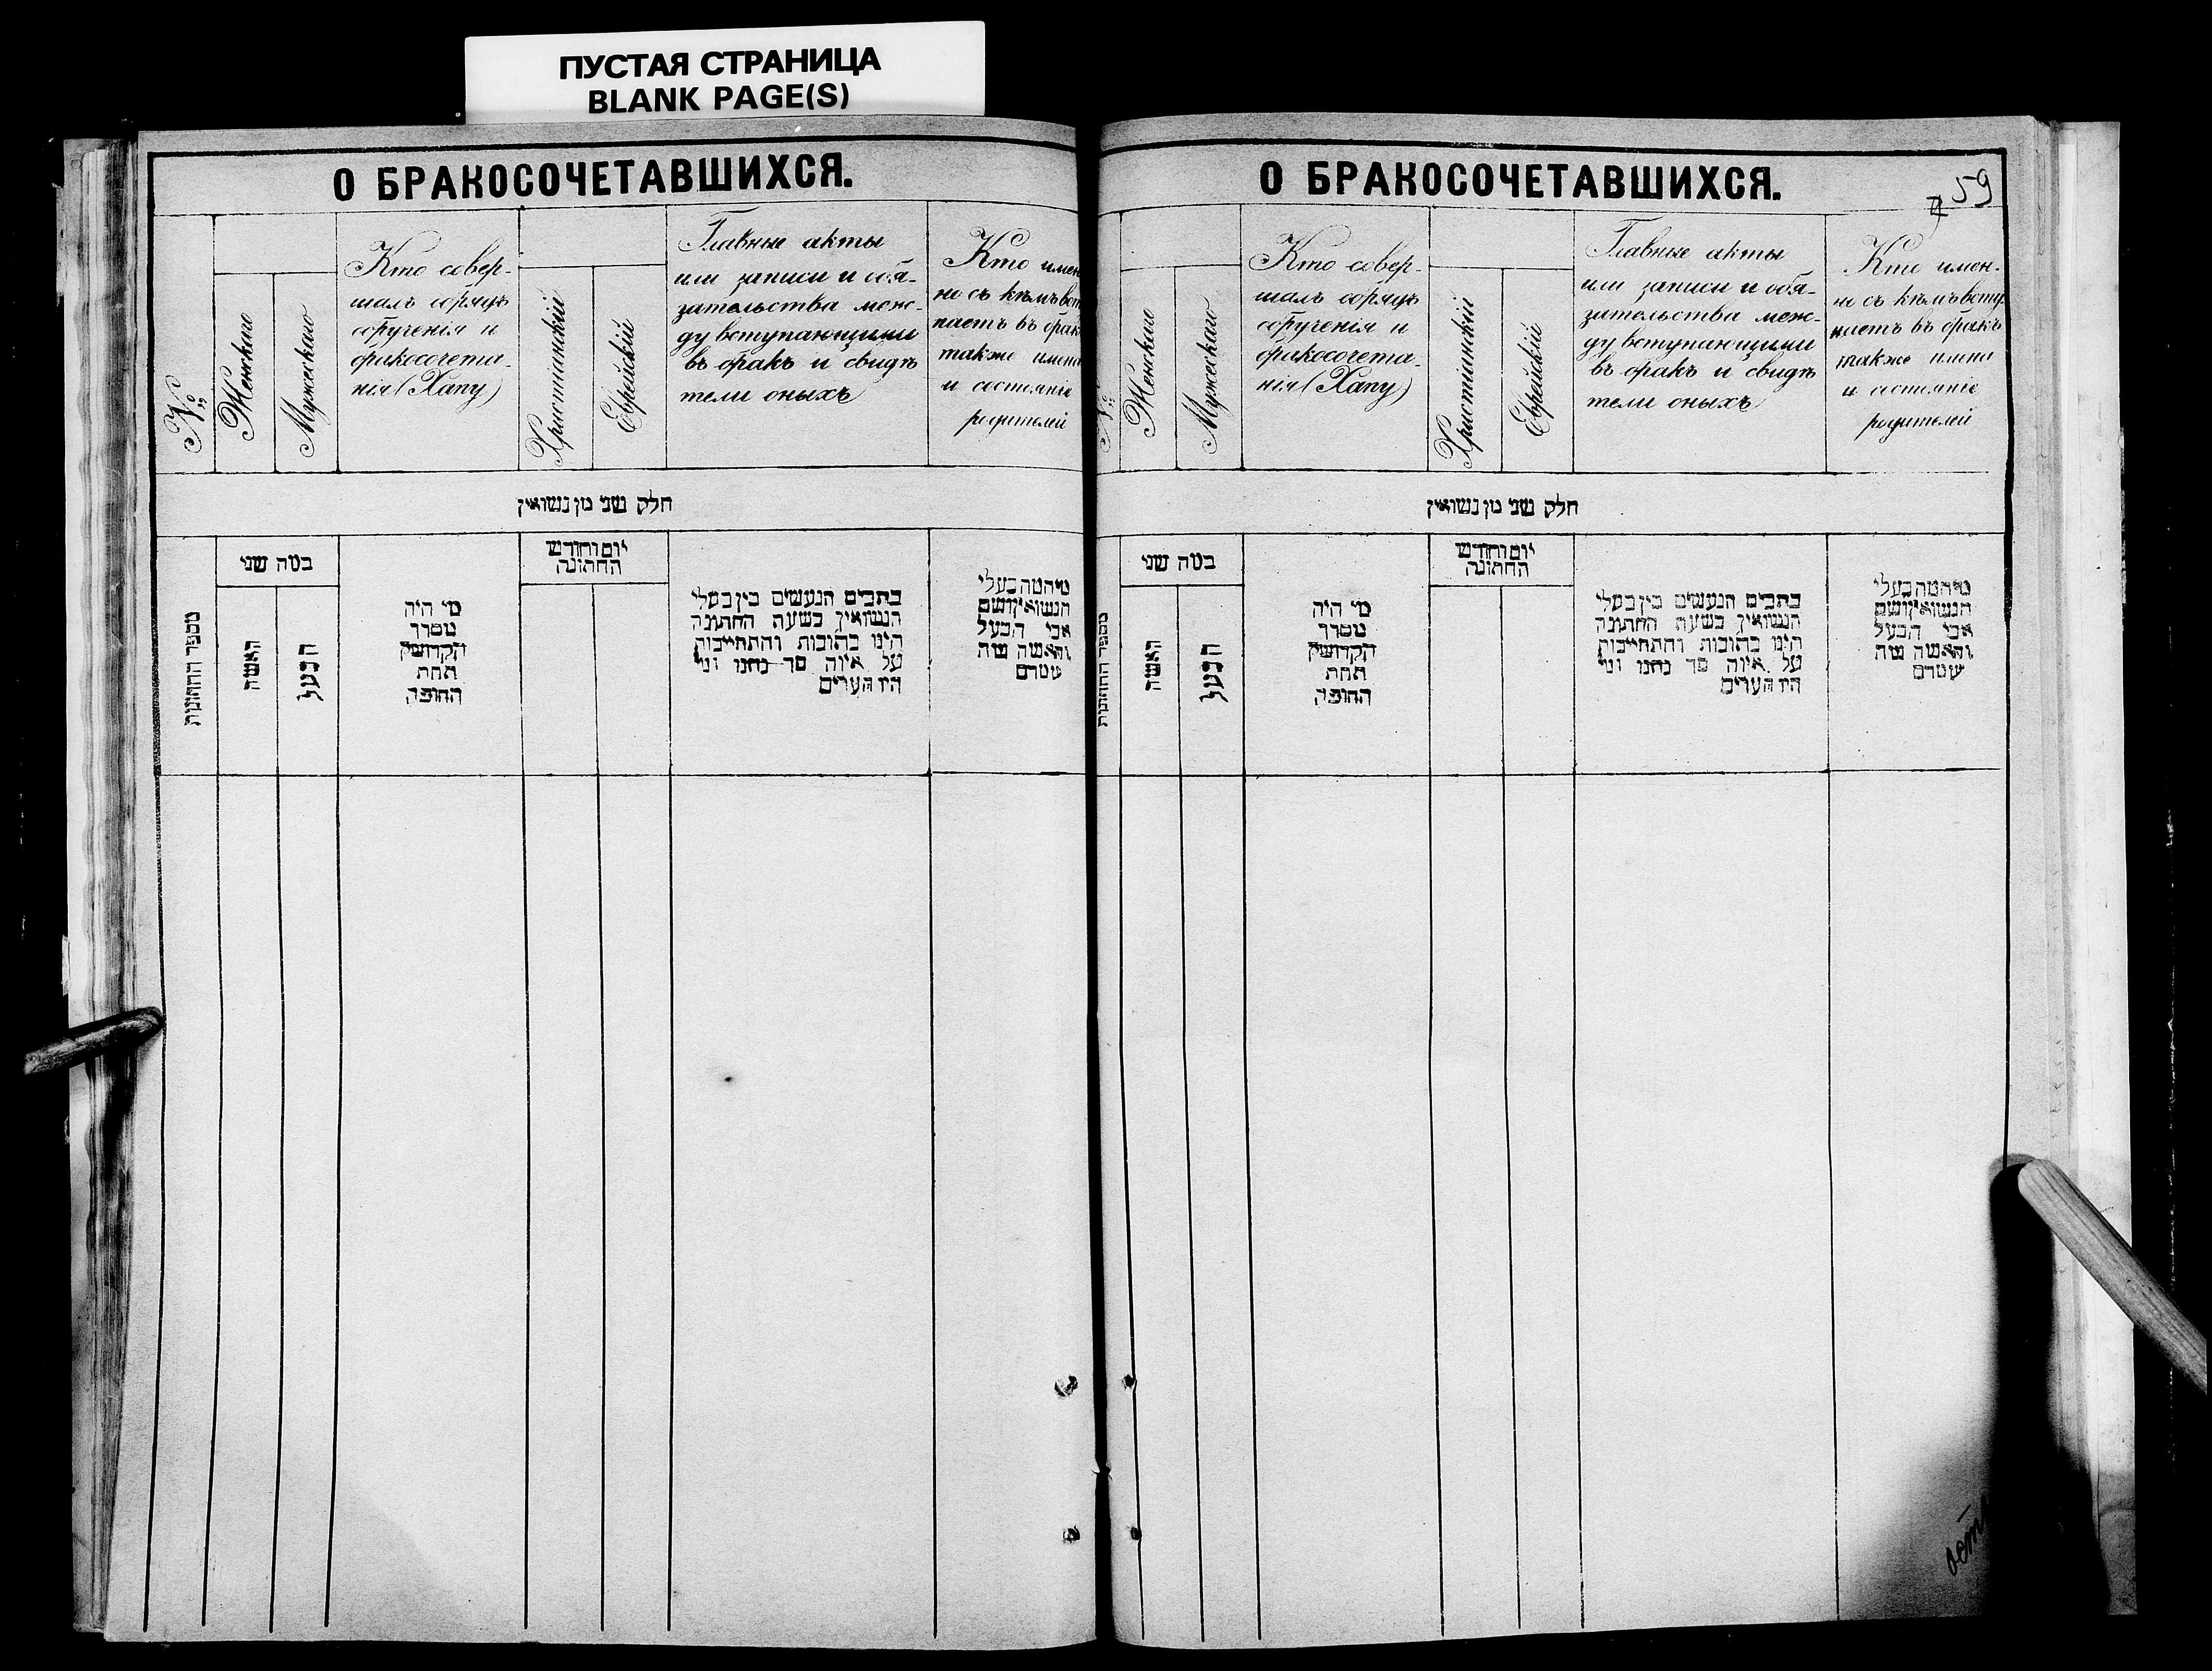 ПУСТАЯ СТРАНИЦА
BLANK PAGE(S)
О БРАКОСОЧЕТАВШИХСЯ.
№
Женскаго
Мужескаго
Кто совер-
шалъ обрядъ
обрученія и
бракосочета-
нія (Хапу)
Христіанскій
Еврейскій
Главные акты
или записи и обя-
зательства меж-
ду вступающими
въ бракъ и свидѣ
тели оныхъ
Кто имен
но съ кѣмъ вст
паетъ въ брак
также имена
и состояніе
родителей
חלק שני מן נשואין
מספר החתונות
במה שני
האשה
הבעל
מי היה
מסדר
הקדושין
תחת
החופה
יום וחודש
החתונה
כתבים הנעשים בין בעלי
הנשואין בשעה החתונה
היינו כתובות והתחייבות
על איזה סך נתנו ומי
היו הערים
מי המה בעלי
הנשואין ושם
אבי הבעל
והאשה מה
О БРАКОСОЧЕТАВШИХСЯ.
59
№
Женскаго
Мужескаго
Кто совер-
шалъ обрядъ
обрученія и
бракосочета-
нія (Хапу)
Христіанскій
Еврейскій
Главные акты
или записи и обя-
зательства меж-
ду вступающими
въ бракъ и свидѣ
тели оныхъ
Кто имен-
но съ кѣмъ всту
паетъ въ бракъ
также имена
и состояніе
родителей
חלק שני מן נשואין
מספר החתונות
במה שני
האשה
הבעל
מי היה
מסדר
הקדושין
תחת
החופה
יום וחודש
החתונה
כתבים הנעשים בין בעלי
הנשואין בשעה החתונה
היינו כתובות והתחייבות
על איזה סך נתנו ומי
היו הערים
מי המה בעלי
הנשואין ושם
אבי הבעל
והאשה מה